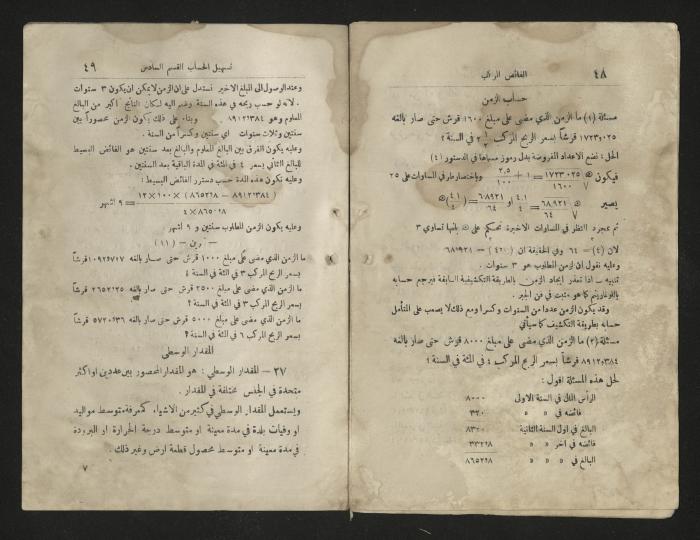 ٤٨ الفائض المركب
حساب الزمن
مسئلة (١) ما الزمن الذي مضى على مبلغ ١٦٠٠ قرش حتى صار بالغه
١٧٢٣٫٠٢٥ قرشاً بسعر الربح المركب ٢ ١/٢ في السنة ؟
الحل : نضع الاعداد المفروضة بدل رموز مسمياتها في الدستور (٤)
فيكون ١٧٢٣٫٠٢٥/١٦٠٠ = ١ + ٢٫٥/١٠٠ وباختصار طرفي المساوات على ٢٥
يصير ٦٨٩٢١/٦٤ = ٤٫١/٤ او ٦٨٩٢١/٦٤ = (٤١/٤)
ثم بمجرد النظر في المساوات الاخيرة نحكم على ن بانها تساوي ٣
لان (٤) = ٦٤ وفي الحقيقة ان (٤١) = ٦٨٩٢١
وعليه نقول ان الزمن المطلوب هو ٣ سنوات .
تنبيه — اذا تعذر ايجاد الزمن بالطريقة التكشيفية السابقة فيرجع حسابه
باللوغارِيتم كما هو مثبت في فن الجبر .
وقد يكون الزمن عددا من السنوات وكسرا ومع ذلك لا يصعب على المتأمل
حسابه بطريقة التكشيف كما سيأتي
مسئلة (٢) ما الزمن الذي مضى على مبلغ ٨٠٠٠ قرش حتى صار بالغه
٨٩١٢٫٣٨٤ قرشاً بسعر الربح المركب ٤ في المئة في السنة ؟
لحل هذه المسئلة اقول :
الرأس المال في السنة الاولى ٨٠٠٠
فائضه في » » ٣٢٠
البالغ في اول السنة الثانية ٨٣٢٠
فائضه في اخر » » ٣٣٢٫٨
البالغ في » » » ٨٦٥٢٫٨
تسهيل الحساب القسم السادس ٤٩
وعند الوصول الى المبلغ الاخير نستدل على ان الزمن لا يمكن ان يكون ٣ سنوات
لانه لو حسب ربحه في هذه السنة وضم اليه لكان الناتج اكبر من البالغ
المعلوم وهو ٨٩١٢٫٣٨٤ وبناء على ذلك يكون الزمن محصوراً بين
سنتين وثلاث سنوات اي سنتين وكسراً من السنة .
وعليه يكون الفرق بين البالغ المعلوم والبالغ بعد سنتين هو الفائض البسيط
للبالغ الثاني بسعر ٤ في المئة في المدة الباقية بعد السنتين .
وعليه تكون هذه المدة حسب دستور الفائض البسيط :
(٨٩١٢٫٣٨٤ − ٨٦٥٢٫٨) × ١٠٠ × ١٢ / ٨٦٥٢٫٨ × ٤ = ٩ اشهر
وعليه يكون الزمن المطلوب سنتين و ٩ اشهر
— (١١) —
ما الزمن الذي مضى على مبلغ ١٠٠٠ قرش حتى صار بالغه قرشاً
بسعر الربح المركب ٣ في المئة في السنة ؟
ما الزمن الذي مضى على مبلغ ٢٥٠٠ قرش حتى صار بالغه ٢٦٥٢٫٢٥ قرشاً
بسعر الربح المركب ٣ في المئة في السنة ؟
ما الزمن الذي مضى على مبلغ ٥٠٠٠ قرش حتى صار بالغه قرشاً
بسعر الربح المركب ٦ في المئة في السنة ؟
المقدار الوسطي
٢٧ — المقدار الوسطي : هو المقدار المحصور بين عددين او اكثر
متحدة في الجنس مختلفة في المقدار .
ويستعمل المقدار الوسطي في كثير من الاشياء كمعرفة متوسط مواليد
او وفيات بلدة في مدة معينة او متوسط درجة الحرارة او البرودة
في مدة معينة او متوسط محصول قطعة ارض وغير ذلك .
٧